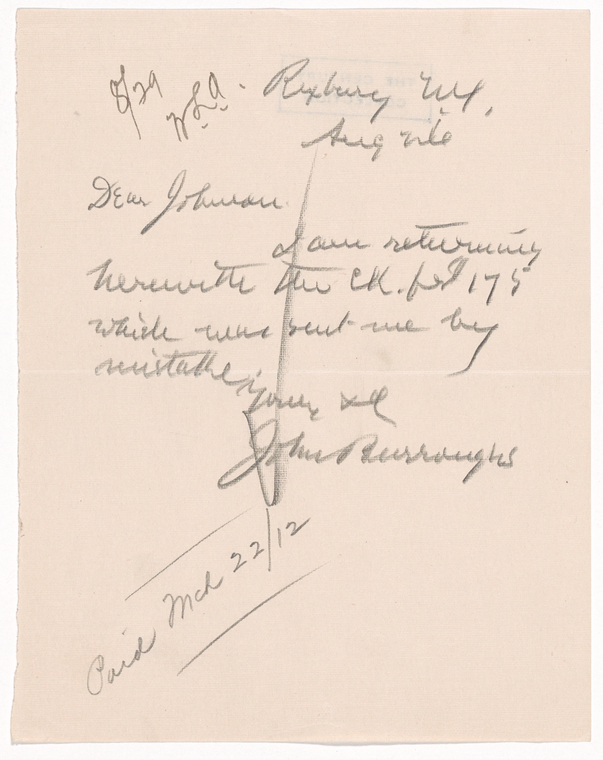 8/29
W.L.A.
Roxbury N.Y.
Aug
Dear Johnson.
I am returning
herewith the CK. for $175
which was sent me by
mistake
Yours &c
John Burroughs
Paid Mch 22/12